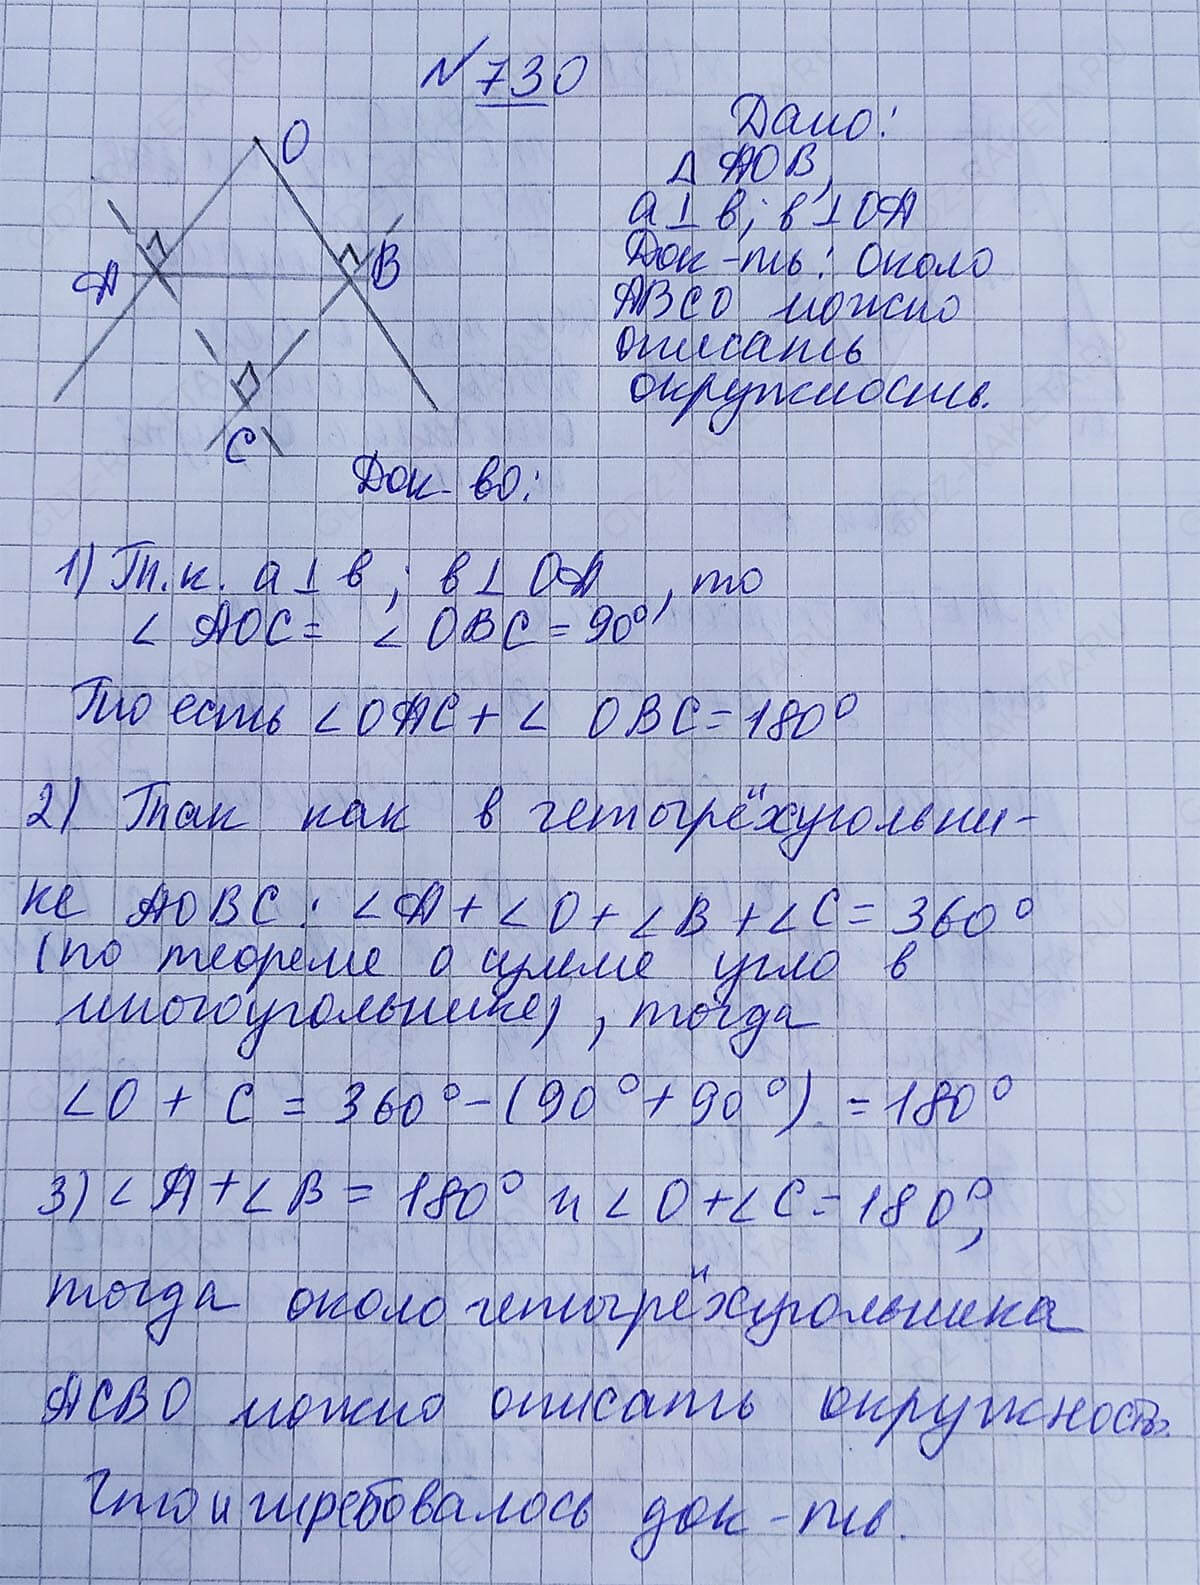 № 730
O
A
B
C
Дано:
Δ AOB,
a⊥b; b⊥OA
Док-ть: около
ABCO можно
описать
окружность.
Док-во:
1) Т.к. a⊥b; b⊥OA, то
∠ AOC = ∠ OBC = 90°,
То есть ∠OAC + ∠ OBC = 180°
2) Так как в четырёхугольни-
ке AOBC: ∠A + ∠O + ∠B + ∠C = 360°
(по теореме о сумме угло в
многоугольнике), тогда
∠O + C = 360° - (90° + 90°) = 180°
3) ∠A + ∠B = 180° и ∠O + ∠C = 180°,
тогда около четырёхугольника
ACBO можно описать окружность.
Что и требовалось док-ть.